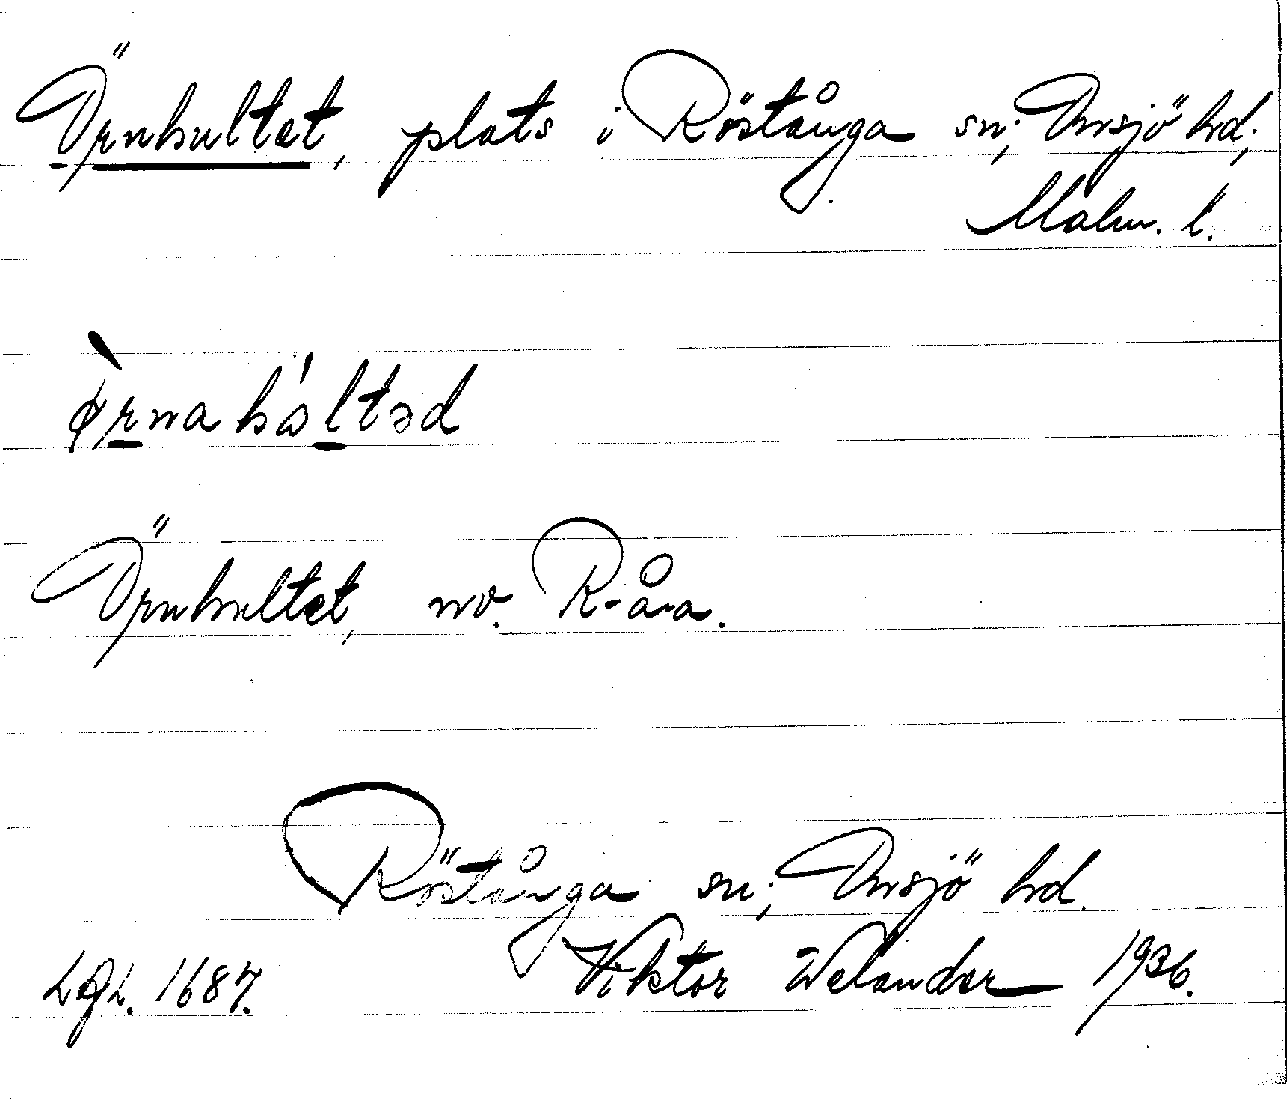 Örnhultet, plats i Röstånga sn; Onsjö hrd;
Malm. l.
ø̀rnahåltəd
Örnhultet, nv. R-å-a.
Röstånga sn; Onsjö hrd.
LGL. 1687. Viktor Welander 1936.